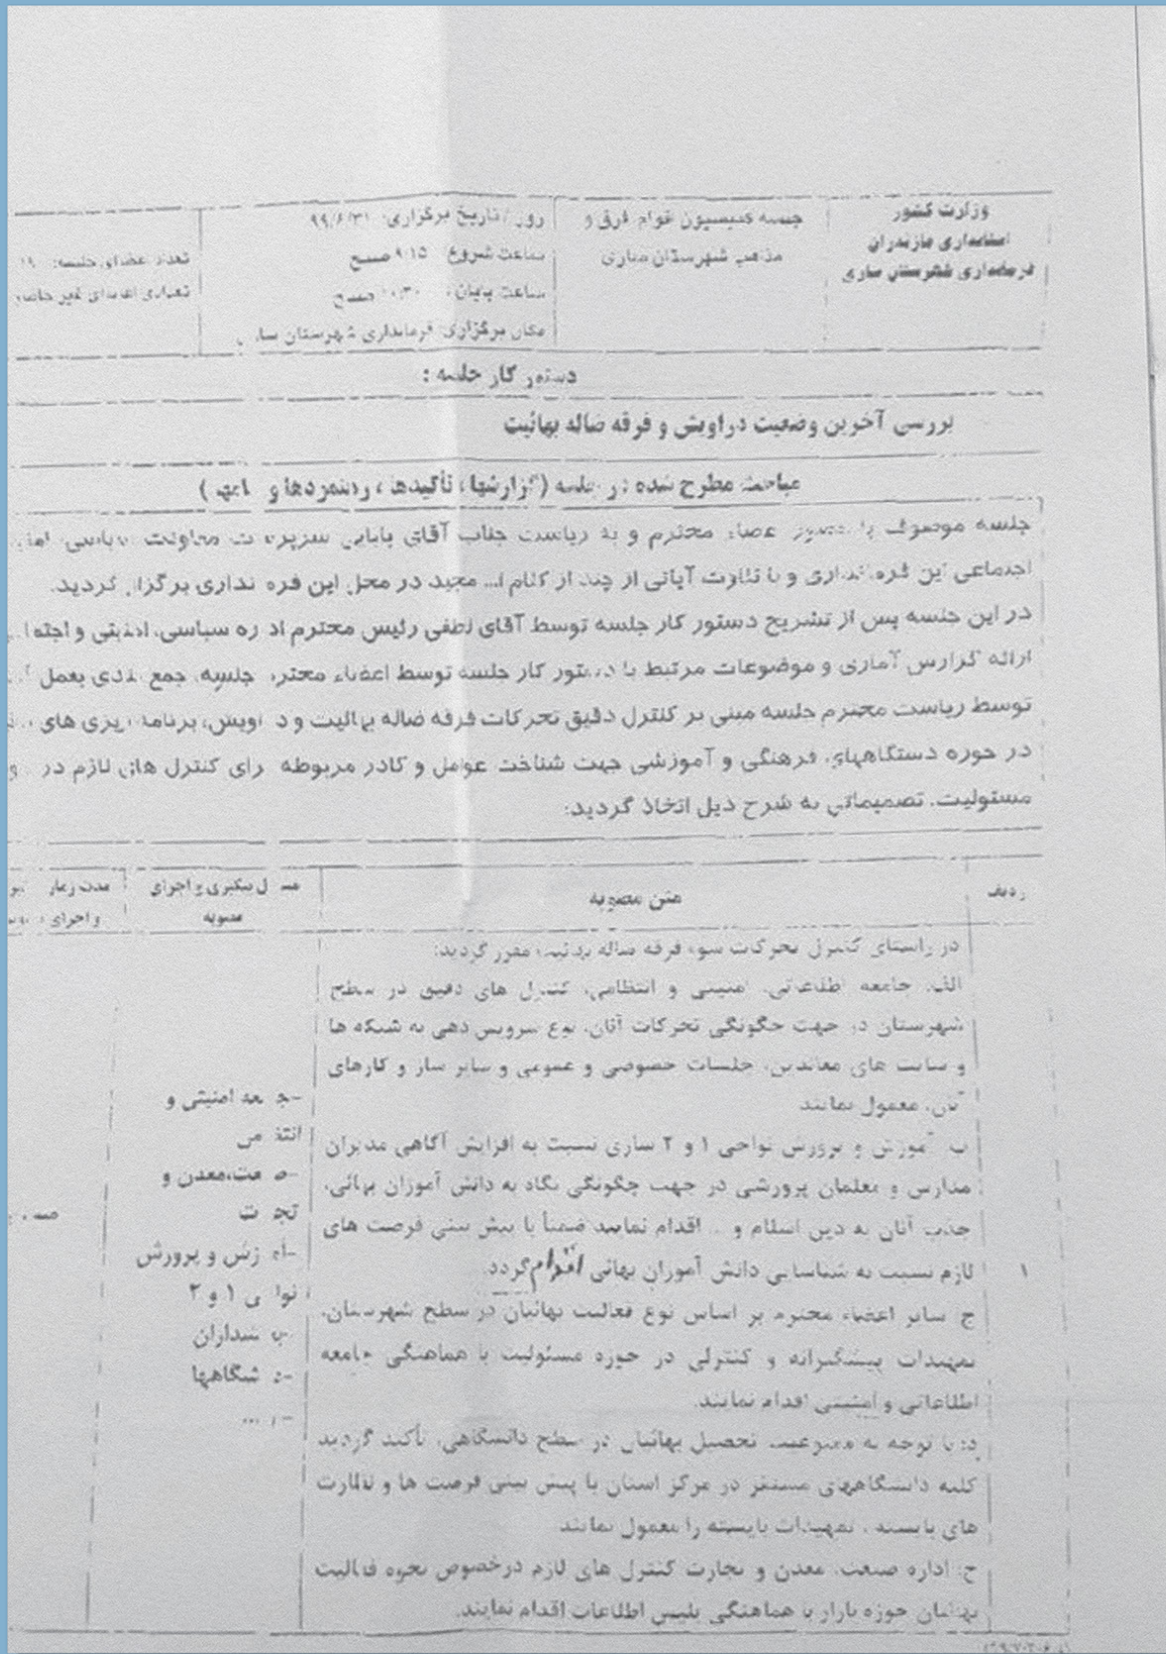 وزارت کشور
استانداری مازندران
فرمانداری شهرستان ساری
جلسه کمیسیون اقوام فرق و
مذاهب شهرستان ساری
روز / تاریخ برگزاری: ۹۹/۶/۳۱
ساعت شروع ۹:۱۵ صبح
ساعت پایان ۱۰:۳۰ صبح
مکان برگزاری: فرمانداری شهرستان ساری
تعداد اعضای جلسه: ۱۹
تعدادی اعضای غیر حاضر
دستور کار جلسه :
بررسی آخرین وضعیت دراویش و فرقه ضاله بهائیت
مباحث مطرح شده در جلسه (گزارشها ، تأکیدها ، رهنمردها و )
جلسه موصوف با حضور اعضاء محترم و به ریاست جناب آقای بابایی سرپرست معاونت سیاسی، امنیتی
اجتماعی این فرمانداری و با تلاوت آیاتی از چند از کلام ا... مجید در محل این فرمانداری برگزار گردید.
در این جلسه پس از تشریح دستور کار جلسه توسط آقای لطفی رئیس محترم اداره سیاسی، امنیتی و اجتما
ارائه گزارش آماری و موضوعات مرتبط با دستور کار جلسه توسط اعضاء محترم جلسه، جمع بندی بعمل
توسط ریاست محترم جلسه مبنی بر کنترل دقیق تحرکات فرقه ضاله بهائیت و دراویش، برنامه ریزی های
در حوزه دستگاههای، فرهنگی و آموزشی جهت شناخت عوامل و کادر مربوطه برای کنترل های لازم در
مسئولیت، تصمیماتی به شرح ذیل اتخاذ گردید:
ردیف
متن مصوبه
مسئول پیگیری و اجرای
مصوبه
مدت زمان
و اجرای
۱
در راستای کنترل تحرکات سوء فرقه ضاله بهائیت مقرر گردید:
الف: جامعه اطلاعاتی، امنیتی و انتظامی، کنترل های دقیق در سطح
شهرستان در جهت چگونگی تحرکات آنان، نوع سرویس دهی به شبکه ها
و سایت های معاندین، جلسات خصوصی و عمومی و سایر ساز و کارهای
آنان، معمول نمایند
ب: آموزش و پرورش نواحی ۱ و ۲ ساری نسبت به افزایش آگاهی مدیران
مدارس و معلمان پرورشی در جهت چگونگی نگاه به دانش آموزان بهائی،
جذب آنان به دین اسلام و ... اقدام نمایند ضمناً با پیش بینی فرصت های
لازم نسبت به شناسایی دانش آموزان بهائی اقدام گردد.
ج: سایر اعضاء محترم بر اساس نوع فعالیت بهائیان در سطح شهرستان،
تمهیدات پیشگیرانه و کنترلی در حوزه مسئولیت با هماهنگی جامعه
اطلاعاتی و امنیتی اقدام نمایند.
د: با توجه به ممنوعیت تحصیل بهائیان در سطح دانشگاهی، تأکید گردید
کلیه دانشگاههای مستقر در مرکز استان با پیش بینی فرصت ها و نظارت
های بایسته ، تمهیدات بایسته را معمول نمایند
ح: اداره صنعت، معدن و تجارت کنترل های لازم درخصوص نحوه فعالیت
بهائیان حوزه بازار با هماهنگی پلیس اطلاعات اقدام نمایند.
-جامعه امنیتی و
انتظامی
-صنعت،معدن و
تجارت
-آموزش و پرورش
نواحی ۱ و ۲
-بخشداران
-دانشگاهها
- و ...